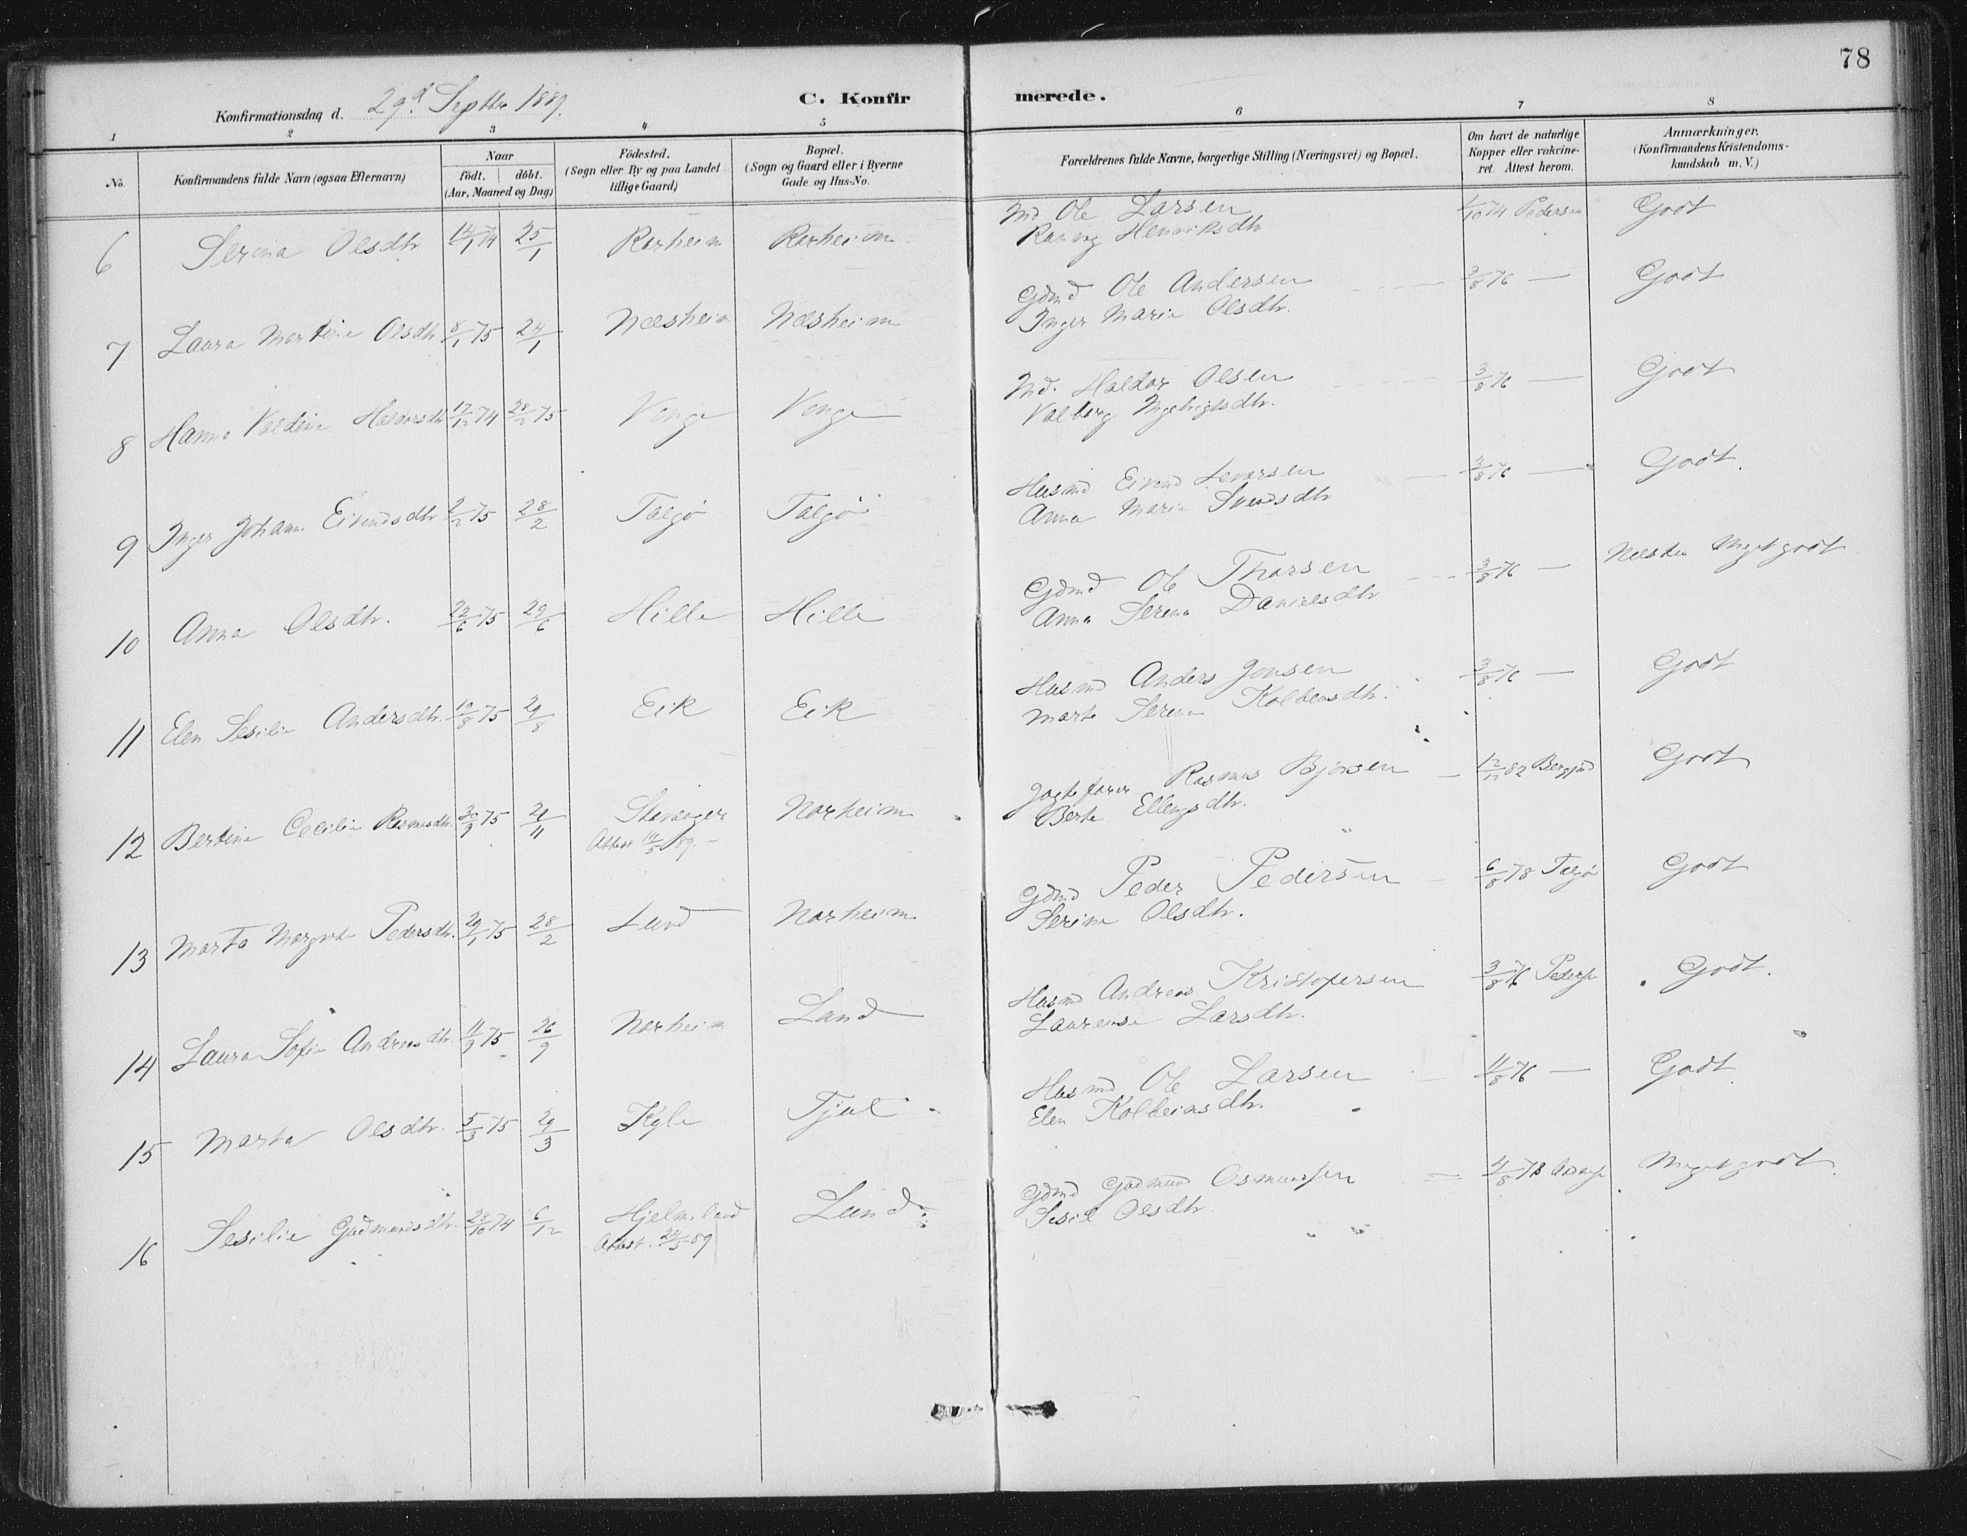 78
Konfirmationsdag d. 29d Septbr 1889.
C. Konfir merede.
1 2 3 4 5 6 7 8
No.
Konfirmandens fulde Navn (ogsaa Efternavn)
Naar
födt. döbt.
(Aar, Maaned og Dag)
Födested.
(Sogn eller By og paa Landet
tillige Gaard)
Bopæl.
(Sogn og Gaard eller i Byerne
Gade og Hus-No.
Forældrenes fulde Navne, borgerlige Stilling (Næringsvei) og Bopæl.
Om havt de naturlige
Kopper eller vakcine-
ret. Attest herom.
Anmærkninger.
(Konfirmandens Kristendoms-
kundskab m. V.)
6 Serina Olsdtr 14/1 74 25/1
Ind Ole Larsen 1/10 74 Pedersen Godt
Henriksdtr
7 Laura Martine Olsdtr 8/1 75 24/1 Næsheim Næsheim
Gdmd Ole Andersen 3/8 76 — Godt
Inger Maria Olsdtr.
8 Hanna Valdine Haldorsdtr 17/12 74 28/2 75 Venge Venge
Ind. Haldor Olsen 3/8 76 — Godt
Valborg Ingebrigtsdtr.
9 Inger Johann Eivindsdtr 2/2 75 28/2 Talgø Talgø
Husmd Eivind Seversen 4/8 76 — Godt.
Anna Maria Svendsdtr
10 Anna Olsdtr. 22/6 75 29/6 Hille Hille
Gdmd Ole Thorsen 3/8 76 — Næsten Meget godt
Anna Serina Danielsdtr
11 Elen Sesilie Andersdtr. 19/8 75 29/8 Eik Eik
Husmd Anders Jonsen 3/8 76 — Godt
Marte Serina Kolbensdtr.
12 Bertine Cecilie Rasmusdtr. 30/9 75 21/11 Stavanger Norheim
Attest 14/5 89. —
Jagtefører Rasmus Bjørsen — 12/12 82 Godt
Berte Ellingsdtr.
13 Marta Margrete Pedersdtr. 29/1 75 28/2 Lund Norheim
Gdmd Peder Pedersen — 6/8 78 Talgø Godt
Serine Olsdtr.
14 Laura Sofie Andreasdtr. 11/9 75 26/9 Norheim Land
Husmd Andreas Kristofersen 3/8 76 Godt.
Laurense Larsdtr.
15 Marta Olsdtr. 5/3 75 29/3 Kyle
Husmd Ole Larsen — 11/8 76 — Godt
Elen Kolbeinsdtr.
16 Sesilie Gudmundsdtr. 28/10 74 6/12 Hjelmeland Lund
Attest. 24/5 89
Gdmd Gudmund Osmundsen 4/8 78 Meget godt.
Sesil Olsdtr.